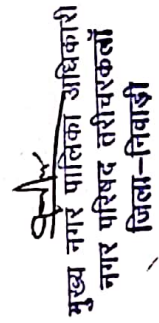 मुख्य नगर पालिका अधिकारी
नगर परिषद तरीचरकलाँ
जिला-निवाड़ी